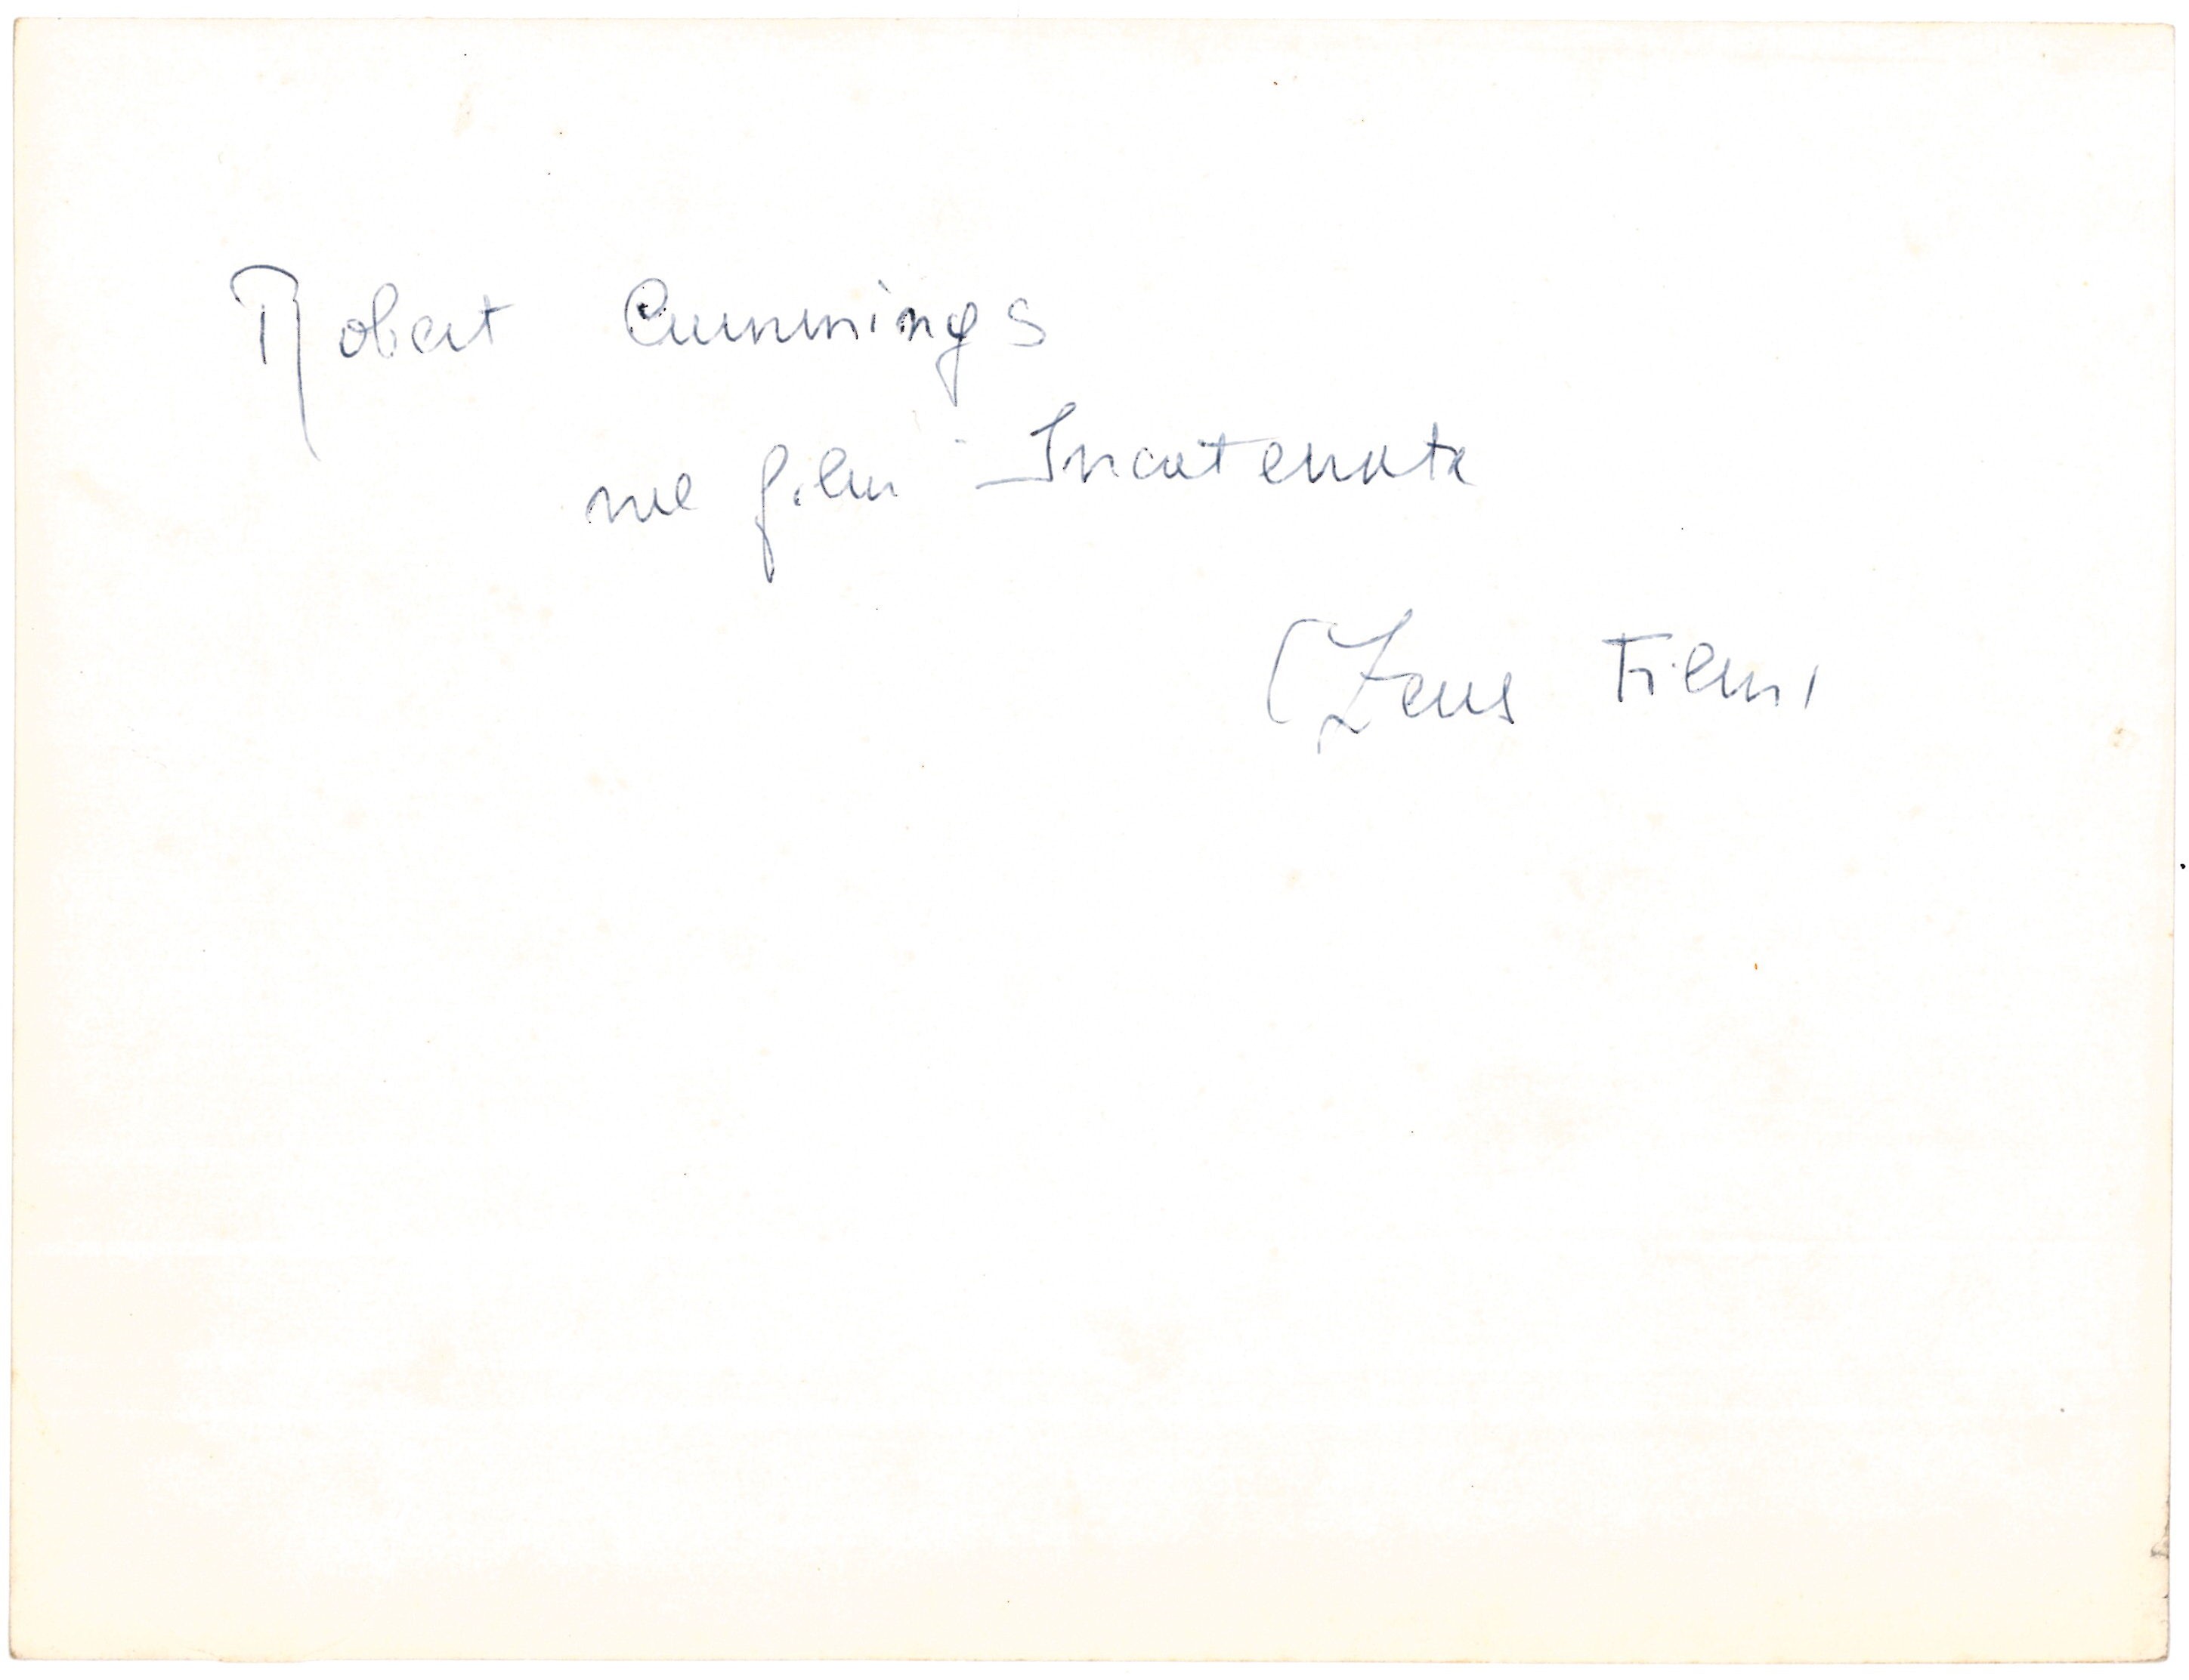 Robert Cummings
nel film "Incatenata
(Zeus Film)